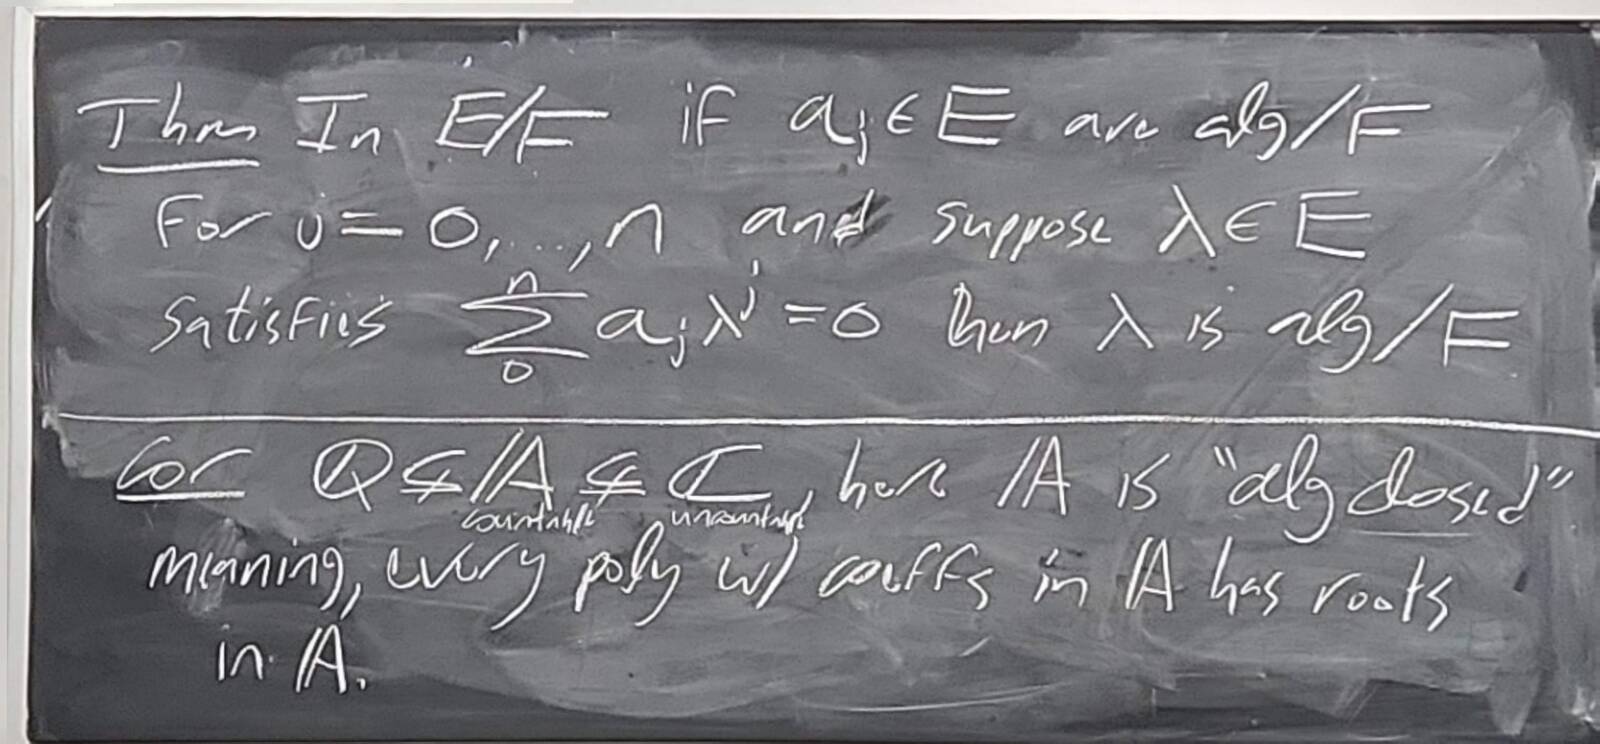 Thm In E/F if aⱼ ∈ E are alg/F
For j = 0,...,n and suppose λ ∈ E
satisfies ∑₀ⁿ aⱼλʲ = 0 then λ is alg/F
Cor ℚ ⊊ 𝔸 ⊊ ℂ, here 𝔸 is "alg closed"
countable uncountable
meaning, every poly w/ coeffs in 𝔸 has roots
in 𝔸.